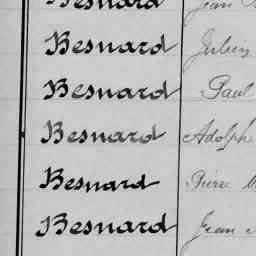 Besnard Jean
Besnard Julien
Besnard Paul
Besnard Adolphe
Besnard Pierre M
Besnard Jean